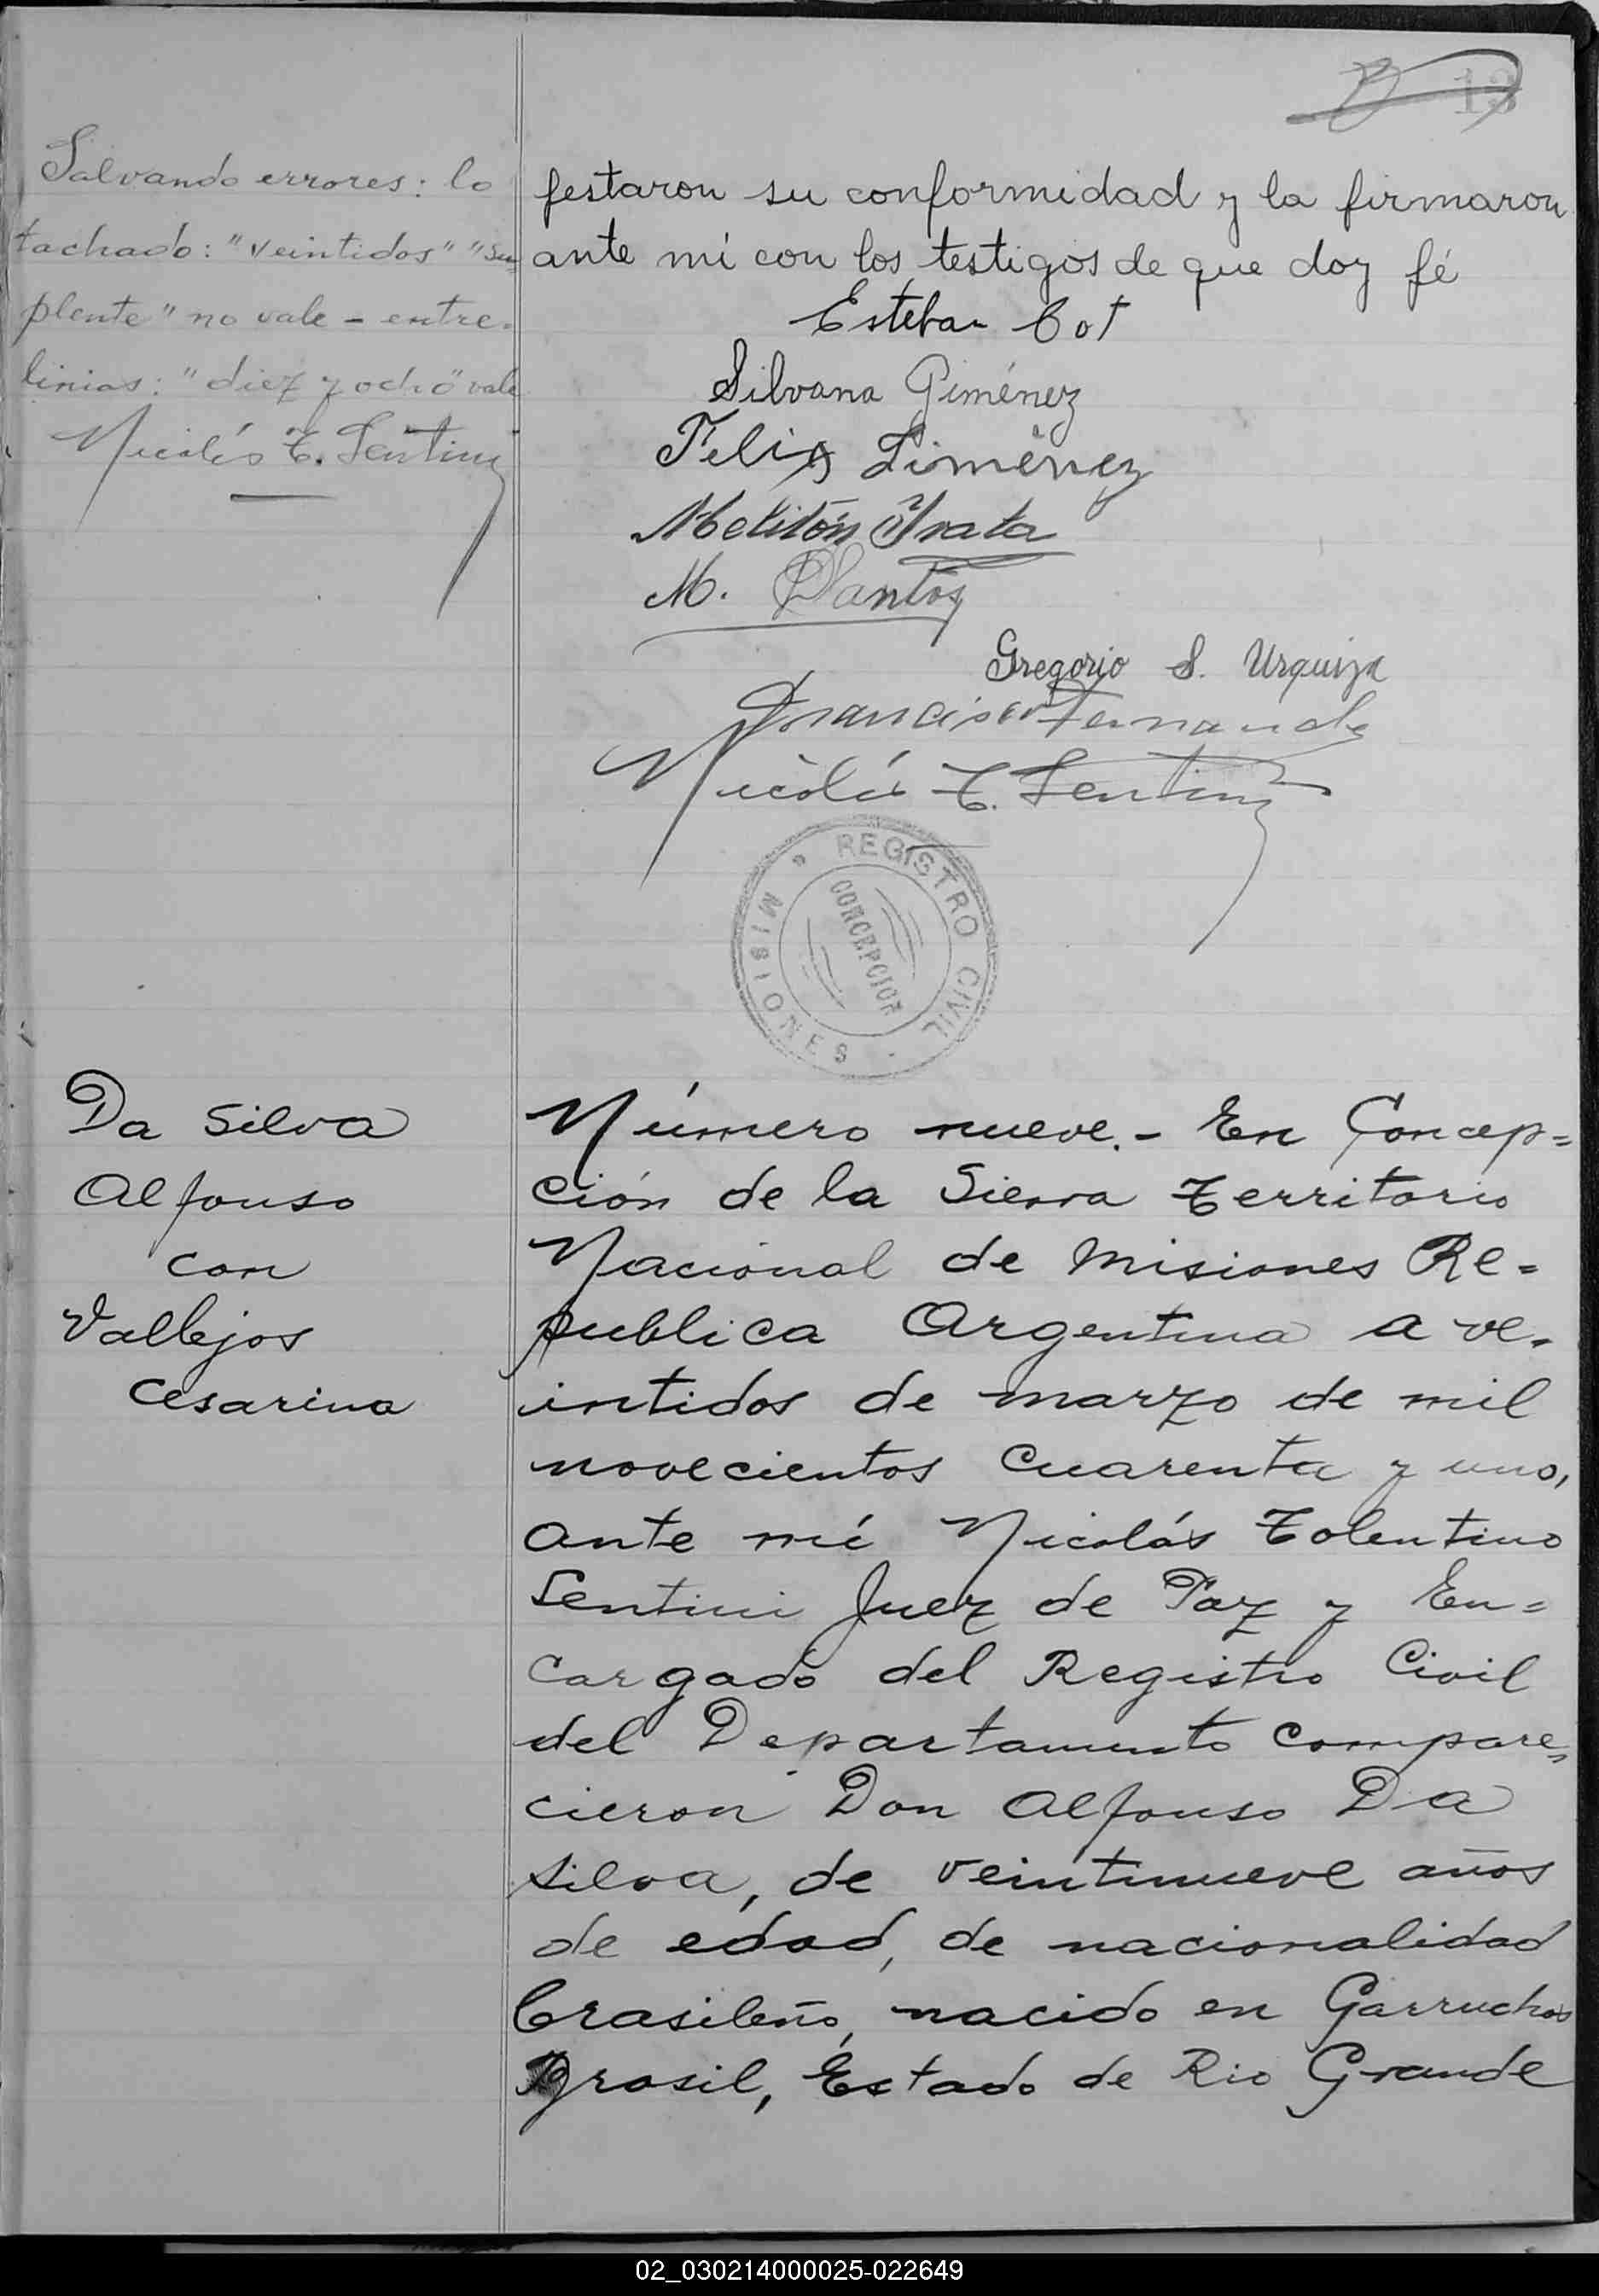 13
Salvando errores: lo
tachado: "veintidos" "Su=
plente" no vale - entre=
linias: "diez y ocho" vale
Nicolás T. Sentini
festaron su conformidad y la firmaron
ante mí con los testigos de que doy fé
Esteban Bot
Silvana Giménez
Felix Gimenez
Melitón
M. Santos
Gregorio S. Urquiza
Francisco Fernandez
Nicolás T. Sentini
REGISTRO CIVIL
CONCEPCION
MISIONES
Da Silva
Alfonso
con
Vallejos
Cesarina
Número nueve.- En Concep=
ción de la Sierra Territorio
Nacional de Misiones Re=
publica Argentina a ve=
intidos de marzo de mil
novecientos cuarenta y uno,
ante mí Nicolás Tolentino
Sentini Juez de Paz y En=
cargado del Registro Civil
del Departamento compare=
cieron Don Alfonso Da
Silva, de veintinueve años
de edad, de nacionalidad
brasileño, nacido en Garruchos
Brasil, Estado de Rio Grande
02_030214000025-022649